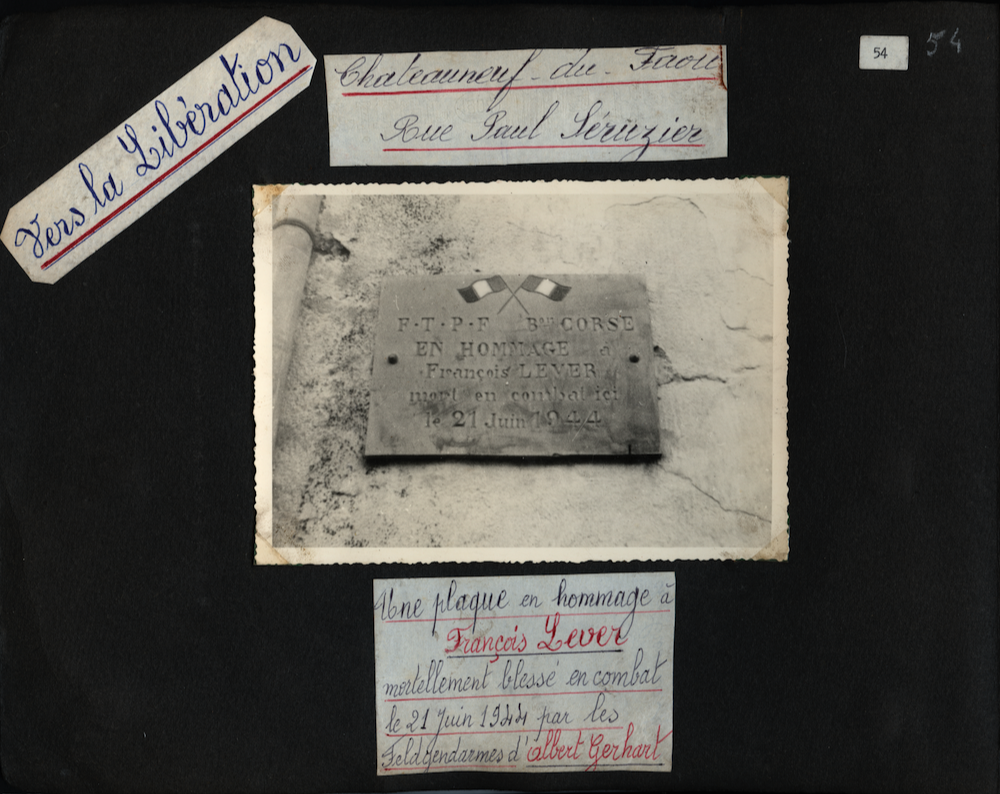 Vers la Libération
Chateauneuf-du-Faou
Rue Paul Séruzier
54
54
F·T·P·F Bon CORSE
EN HOMMAGE à
François LEVER
mort en combat ici
le 21 Juin 1944
Une plaque en hommage à
François Lever
mortellement blessé en combat
le 21 Juin 1944 par les
Feldgendarmes d'Albert Gerhart